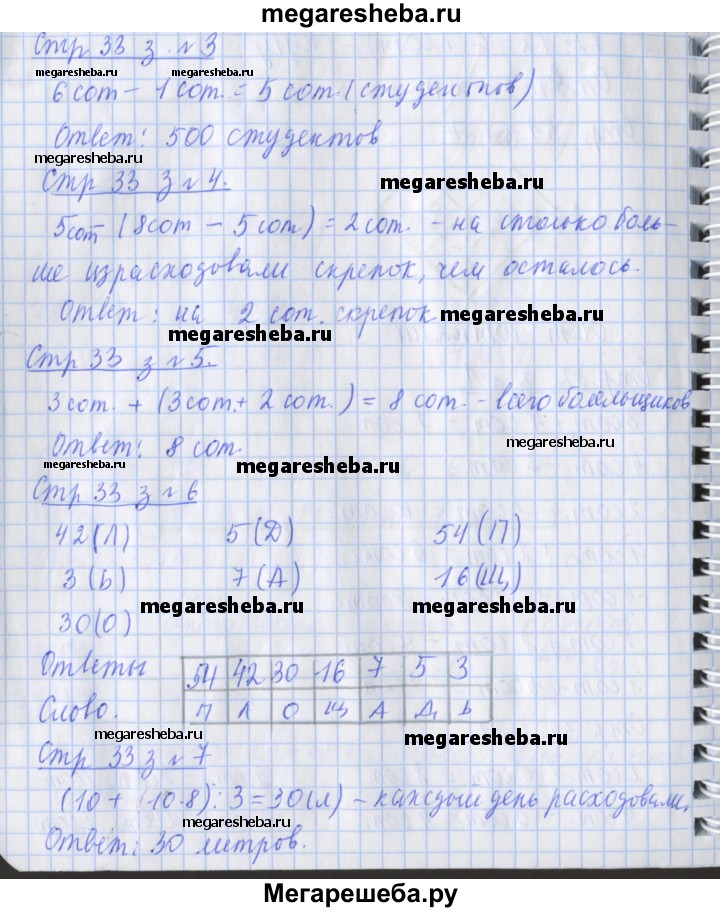 megaresheba.ru
Стр 33 з. №3
megaresheba.ru megaresheba.ru
6 сот – 1 сот. = 5 сот. (студентов)
Ответ: 500 студентов
megaresheba.ru
Стр 33 з №4.
megaresheba.ru
5 сот (8 сот – 5 сот) = 2 сот. – на столько боль-
ше израсходовали скрепок, чем осталось.
Ответ: на 2 сот. скрепок
megaresheba.ru
megaresheba.ru
Стр 33 з №5.
3 сот. + (3 сот. + 2 сот.) = 8 сот. – всего болельщиков
Ответ: 8 сот
megaresheba.ru
megaresheba.ru
megaresheba.ru
Стр 33 з №6
42 (Л) 5 (Д) 54 (П)
3 (Ь) 7 (А) 16 (Щ)
megaresheba.ru megaresheba.ru
30 (О)
Ответы 54 42 30 16 7 5 3
Слово. П Л О Щ А Д Ь
megaresheba.ru megaresheba.ru
Стр 33 з №7
(10 + (10·8)) : 3 = 30 (л) – каждый день расходовали,
megaresheba.ru
Ответ: 30 литров.
megaresheba.ru
Мегарешеба.ру